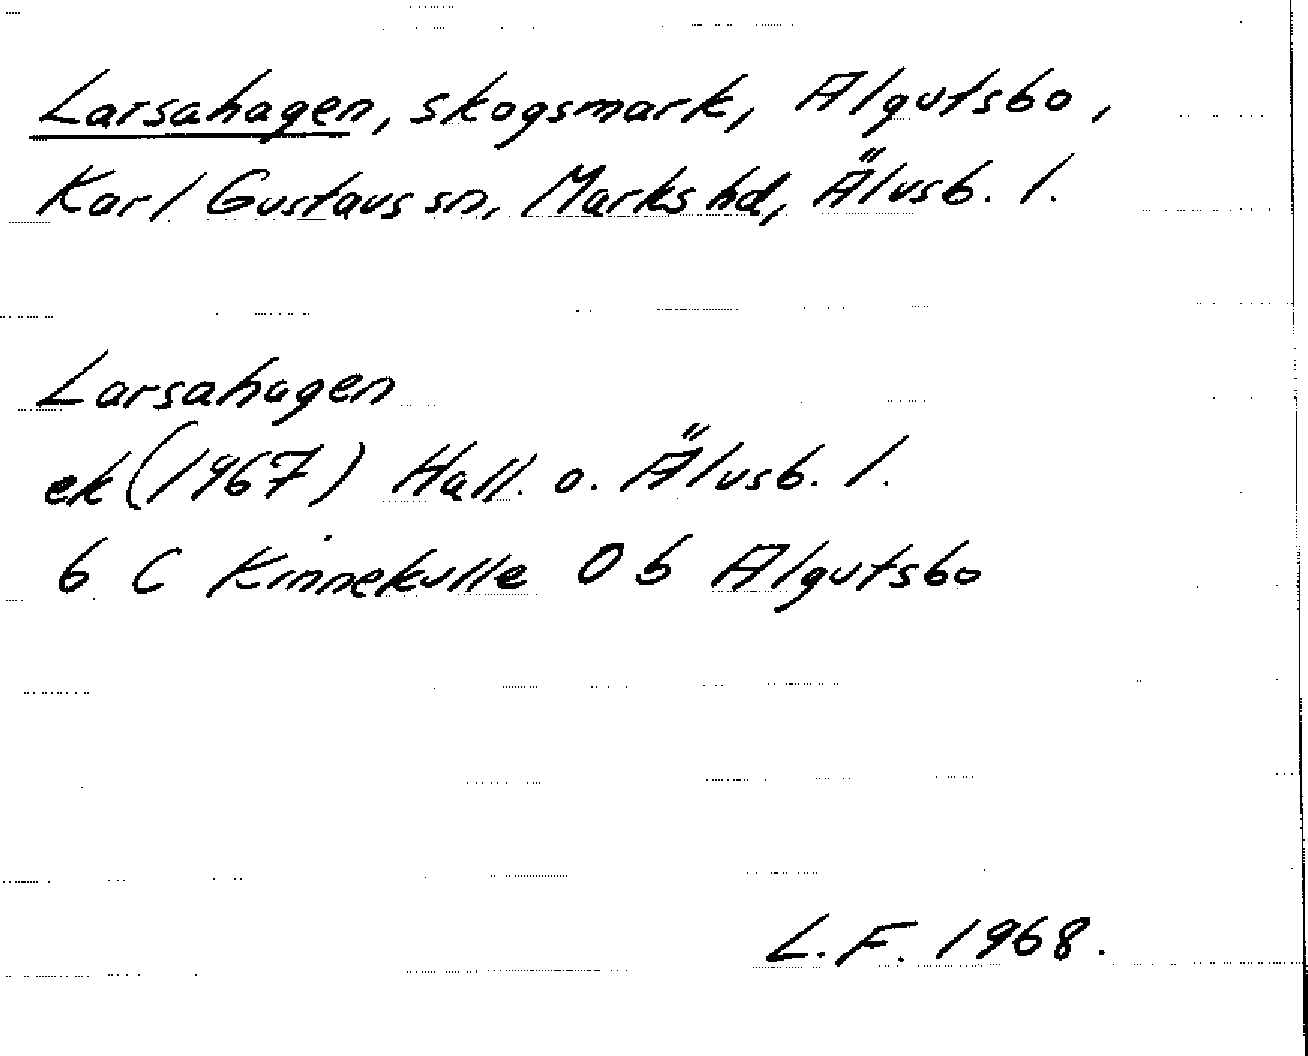 Larsahagen, skogsmark, Algutsbo,
Karl Gustavs sn, Marks hd, Älvsb. l.
Larsahagen
ek (1967) Hall. o. Älvsb. l.
6 C Kinnekulle 0 b Algutsbo
L.F. 1968.